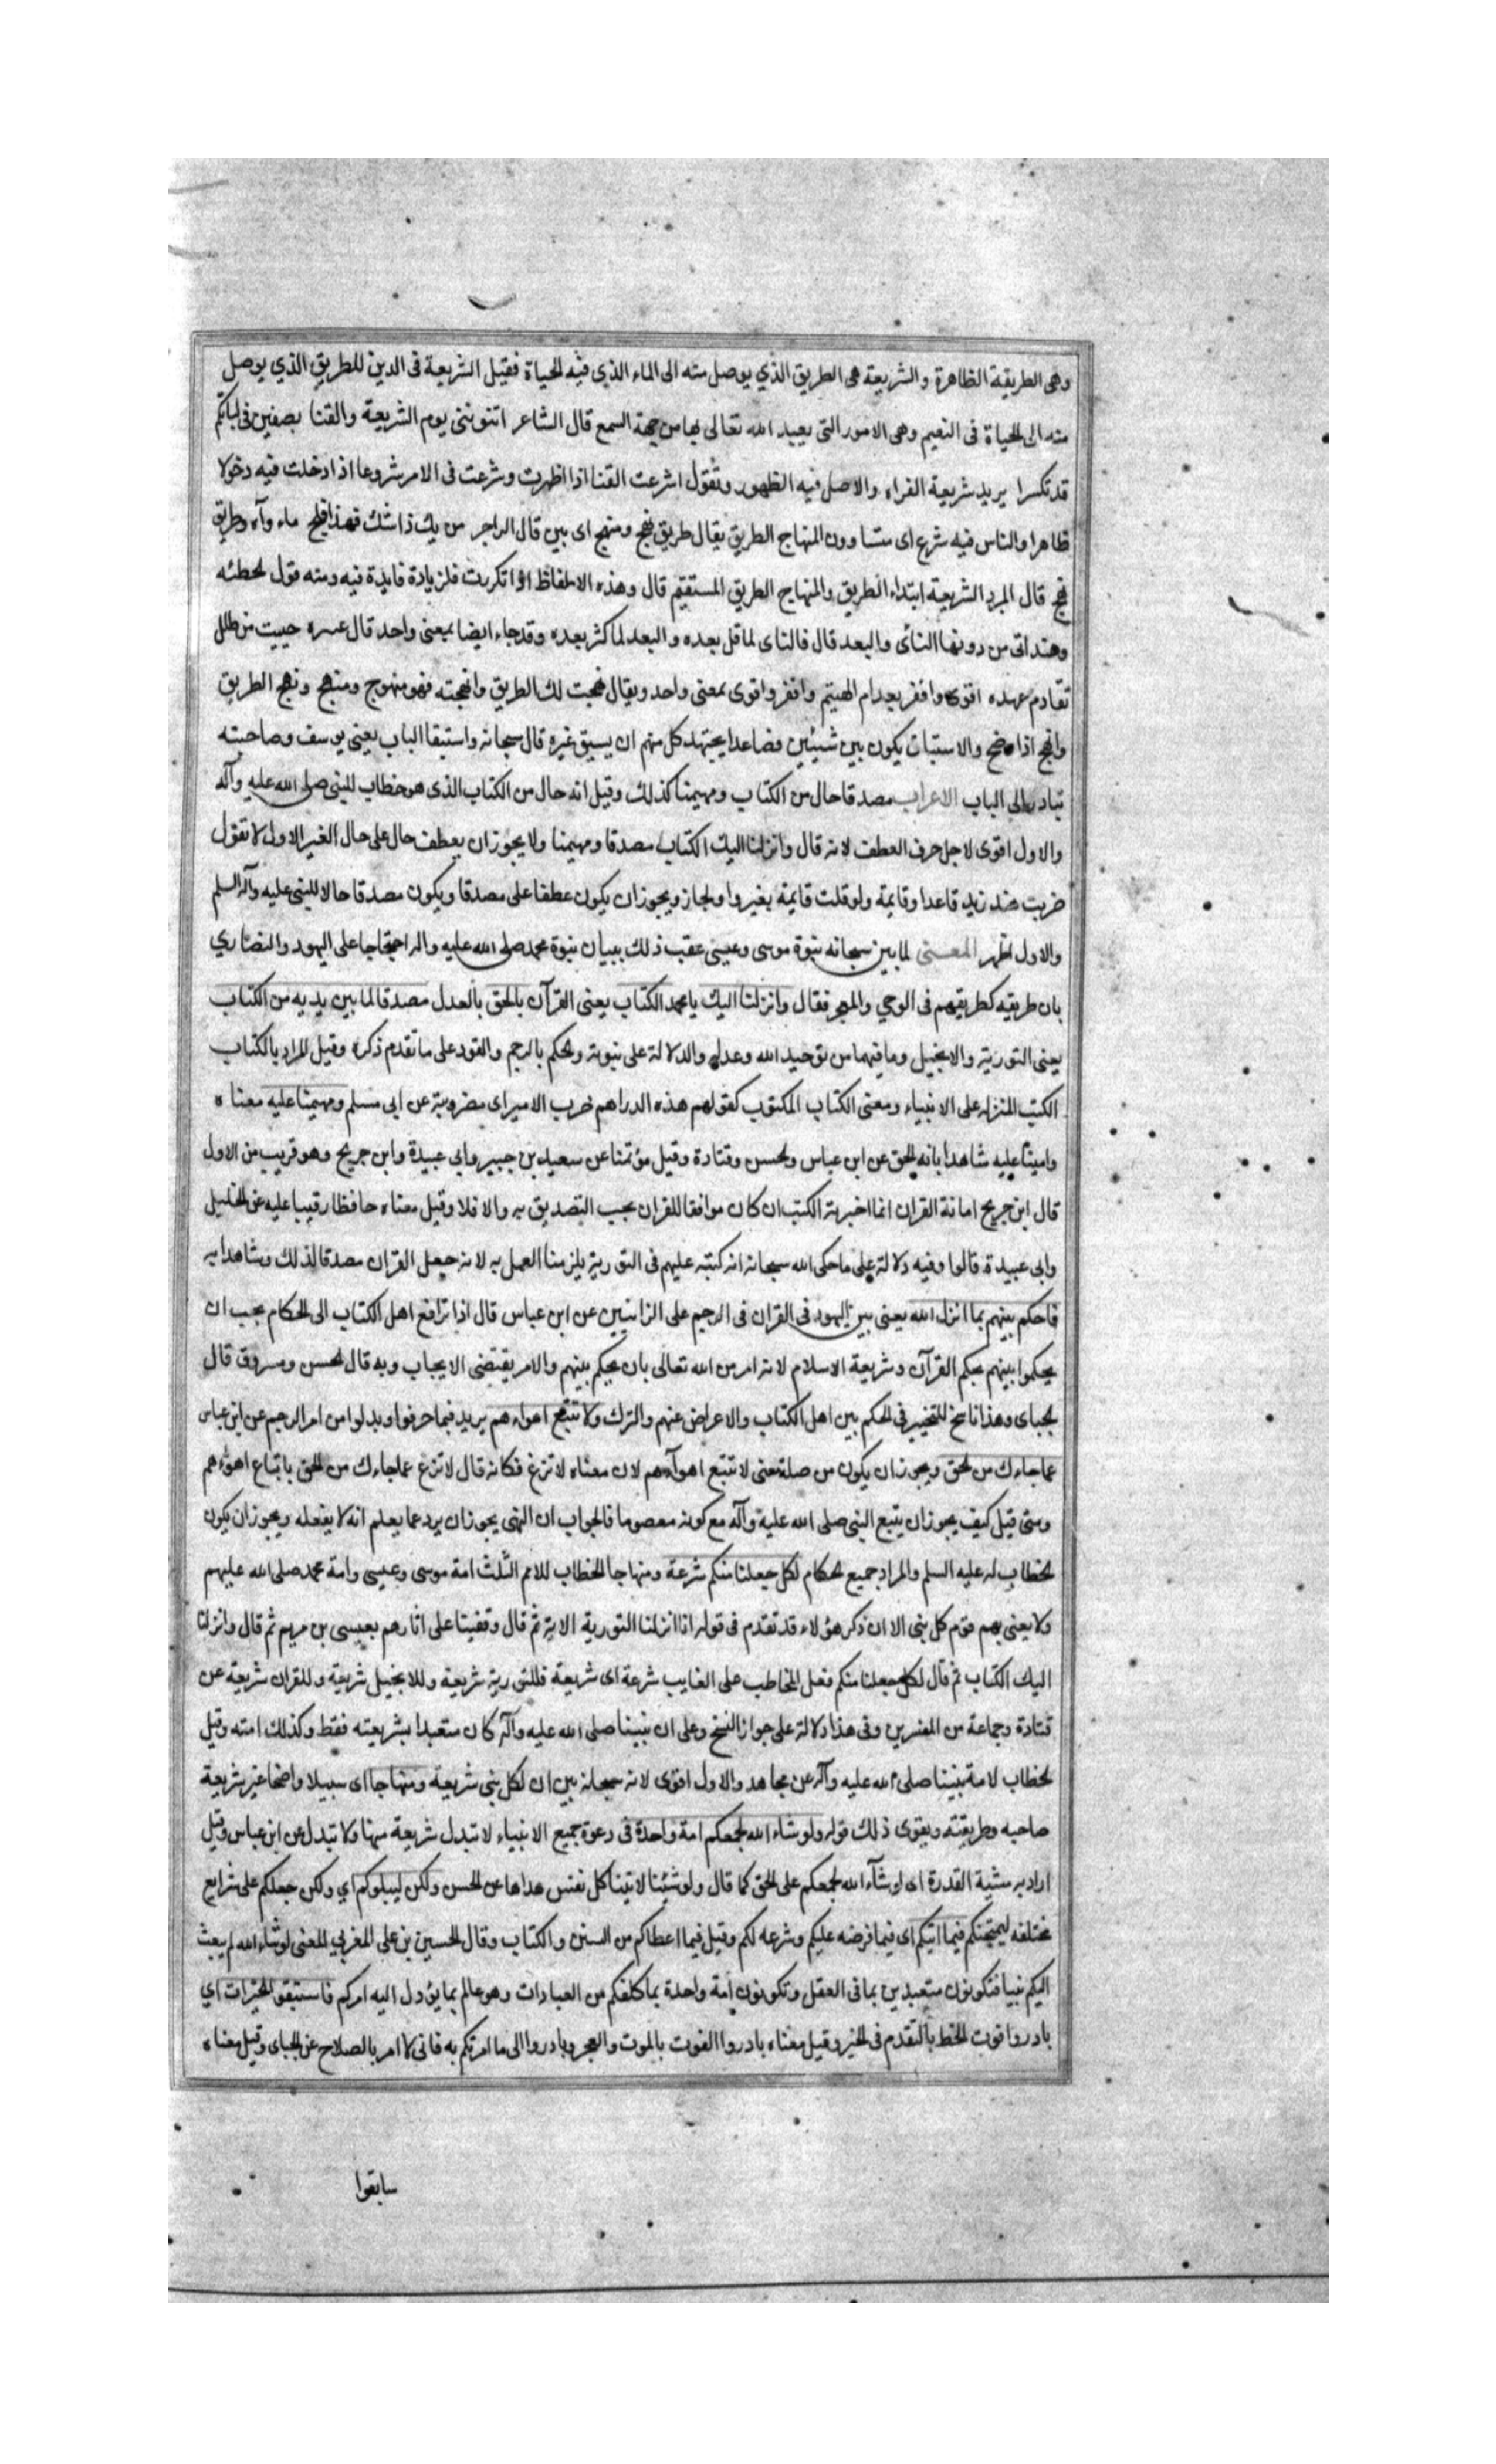 وهى الطريقة الظاهرة والشريعة هى الطريق الذي يوصل منه الى الماء الذي فيه الحياة فقيل الشريعة فى الدين للطريق الذي يوصل
منه الى الحياة فى النعيم وهى الامور التى يعبد الله تعالى بها من جهة السمع قال الشاعر اتنوننى يوم الشريعة والقنا بصفين فى لباتكم
قد تكسرا يريد شريعة الفراه والاصل فيه الظهور وتقول اشرعت القنا اذا اظهرت وشرعت فى الامر شروعا اذا دخلت فيه دخولا
ظاهرا والناس فيه شرع اى متساوون المنهاج الطريق يقال طريق نهج ومنهج اى بين قال الراجز من يك ذا شك فهذا فلج ماء وآء وطريق
نهج قال المبرد الشريعة ابتداء الطريق والمنهاج الطريق المستقيم قال وهذه الالفاظ اذا تكررت فلزيادة فايدة فيه ومنه قول الحطئه
وهند اتى من دونها النأى والبعد قال فالناى لما قل بعده والبعد لما كثر بعده وقد جاء ايضا بمعنى واحد قال عنتره حييت من طلل
تقادم عهده اقوى وافقر بعد ام الهيثم وافقر واقوى بمعنى واحد ويقال نهجت لك الطريق وانهجته فهو منهوج ومنهج ونهج الطريق
وانهج اذا وضح والاستباق يكون بين شيئين فصاعدا يجتهد كل منهم ان يسبق غيره قال سبحانه واستبقا الباب يعنى يوسف وصاحبته
تبادرا الى الباب الاعراب مصدقا حال من الكتاب ومهيمنا كذلك وقيل انه حال من الكتاب الذى هو خطاب للنبى صلى الله عليه وآله
والاول اقوى لاجل حرف العطف لانه قال وانزلنا اليك الكتاب مصدقا ومهيمنا ولا يجوز ان يعطف حال على حال الغير الاول لا تقول
ضربت هند زيد قاعدا وقايمة ولو قلت قايمة بغير واو لجاز ويجوز ان يكون عطفا على مصدقا ويكون مصدقا حالا للنبى عليه وآله السلم
والاول اظهر المعنى لما بين سبحانه نبوة موسى وعيسى عقب ذلك ببيان نبوة محمد صلى الله عليه واله احتجاجا على اليهود والنصاري
بان طريقه كطريقهم فى الوحي والمعجز فقال وانزلنا اليك يا محمد الكتاب يعنى القرآن بالحق بالعدل مصدقا لما بين يديه من الكتاب
يعنى التورية والانجيل وما فيهما من توحيد الله وعدله والدلالة على نبوته والحكم بالرجم والقود على ما تقدم ذكره وقيل المراد بالكتاب
الكتب المنزله على الانبياء ومعنى الكتاب المكتوب كقولهم هذه الدراهم ضرب الامير اى مضروبة عن ابى مسلم ومهيمنا عليه معناه
وامينا عليه شاهدا بانه الحق عن ابن عباس والحسن وقتادة وقيل مؤتمنا عن سعيد بن جبير وابي عبيدة وابن جريج وهو قريب من الاول
قال ابن جريج امانة القران انما اخبر به الكتب ان كان موافقا للقران يجب التصديق به والا فلا وقيل معناه حافظا رقيبا عليه عن الخليل
وابى عبيدة قالوا وفيه دلالة على ما حكى الله سبحانه انه كتبه عليهم فى التورية يلزمنا العمل به لانه جعل القران مصدقا لذلك وشاهدا به
فاحكم بينهم بما انزل الله يعنى بين اليهود فى القران فى الرجم على الزانيين عن ابن عباس قال اذا ترافع اهل الكتاب الى الحكام يجب ان
يحكموا بينهم بحكم القرآن وشريعة الاسلام لانه امر من الله تعالى بان يحكم بينهم والامر يقتضى الايجاب وبه قال الحسن ومسروق قال
الجباى وهذا ناسخ للتخيير فى الحكم بين اهل الكتاب والاعراض عنهم والترك ولا تتبع اهواءهم يريد فيما حرفوا وبدلوا من امر الرجم عن ابن عباس
عما جاءك من الحق ويجوز ان يكون من صلة معنى لا تتبع اهوآءهم لان معناه لا تزغ فكانه قال لا تزغ عما جاءك من الحق باتباع اهوآءهم
ومتى قيل كيف يجوز ان يتبع النبى صلى الله عليه وآله مع كونه معصوما فالجواب ان النهى يجوز ان يرد عما يعلم انه لا يفعله ويجوز ان يكون
الخطاب له عليه السلم والمراد جميع الحكام لكل جعلنا منكم شرعة ومنهاجا الخطاب للامم الثلث امة موسى وعيسى وامة محمد صلى الله عليهم
ولا يعنى بهم قوم كل نبى الا ان ذكر هؤلاء قد تقدم فى قوله انا انزلنا التورية الاية ثم قال وقفينا على اثارهم بعيسى بن مريم ثم قال وانزلنا
اليك الكتاب ثم قال لكل جعلنا منكم فغلب المخاطب على الغايب شرعة اى شريعة فللتورية شريعة وللانجيل شريعة وللقران شريعة عن
قتادة وجماعة من المفسرين وفى هذا دلالة على جواز النسخ وعلى ان نبينا صلى الله عليه وآله كان متعبدا بشريعته فقط وكذلك امته وقيل
الخطاب لامة نبينا صلى الله عليه وآله عن مجاهد والاول اقوى لانه سبحانه بين ان لكل نبى شريعة ومنهاجا اى سبيلا واضحا غير شريعة
صاحبه وطريقته ويقوى ذلك قوله ولو شاء الله لجعلكم امة واحدة فى دعوة جميع الانبياء لا تبدل شريعة منها ولا تبدل عن ابن عباس وقيل
اراد به مشية القدرة اى لو شآء الله لجمعكم على الحق كما قال ولو شئنا لاتينا كل نفس هداها عن الحسن ولكن ليبلوكم اي ولكن جعلكم على شرايع
مختلفه ليمتحنكم فيما اتيكم اى فيما فرضه عليكم وشرعه لكم وقيل فيما اعطاكم من السنن والكتاب وقال الحسين بن على المغربي المعنى لو شاء الله لم يبعث
اليكم نبيا فتكونون متعبدين بما فى العقل وتكونون امة واحدة بما كلفكم من العبادات وهو عالم بما يؤول اليه امركم فاستبقوا الخيرات اي
بادروا فوت الحظ بالتقدم فى الخير وقيل معناه بادروا الفوت بالموت والعجز وبادروا الى ما امرتكم به فانى لا امر بالصلاح عن الجباى وقيل معناه
سابقوا